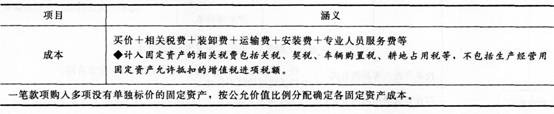 项目 涵义
成本
买价＋相关税费＋装卸费＋运输费＋安装费＋专业人员服务费等
◆计入固定资产的相关税费包括关税、契税、车辆购置税、耕地占用税等，不包括生产经营用
固定资产允许抵扣的增值税进项税额。
一笔款项购人多项没有单独标价的固定资产，按公允价值比例分配确定各固定资产成本。